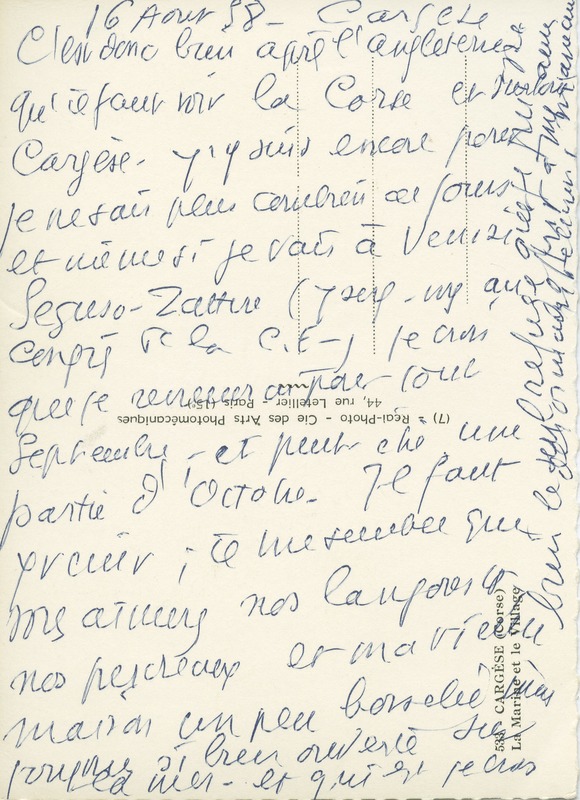 16 Aout 58 - Cargèse
C'est donc bien après l'angleterre
qu'il faut voir la Corse et surtout
Cargèse - j'y suis encore pour
je ne sais plus combien de jours
et même si je vais à Venise
Seguso-Zattere (
congrès de la C.E-) je crois
que je revienarai pour tout
Septembre - et peut être une
partie d'Octobre. Il faut
venir ; il me semble que
vous aimerez nos langoustes
nos pêcheurs et ma vieille
maison un peu
toujours si bien ouverte sur
la mer - et qui est je crois
bien le seul refuge
(7) - Réal-Photo - Cie des Arts Photomécaniques
44, rue Letellier - Paris (15e)
533. CARGÈSE (Corse)
La Marine et le Village